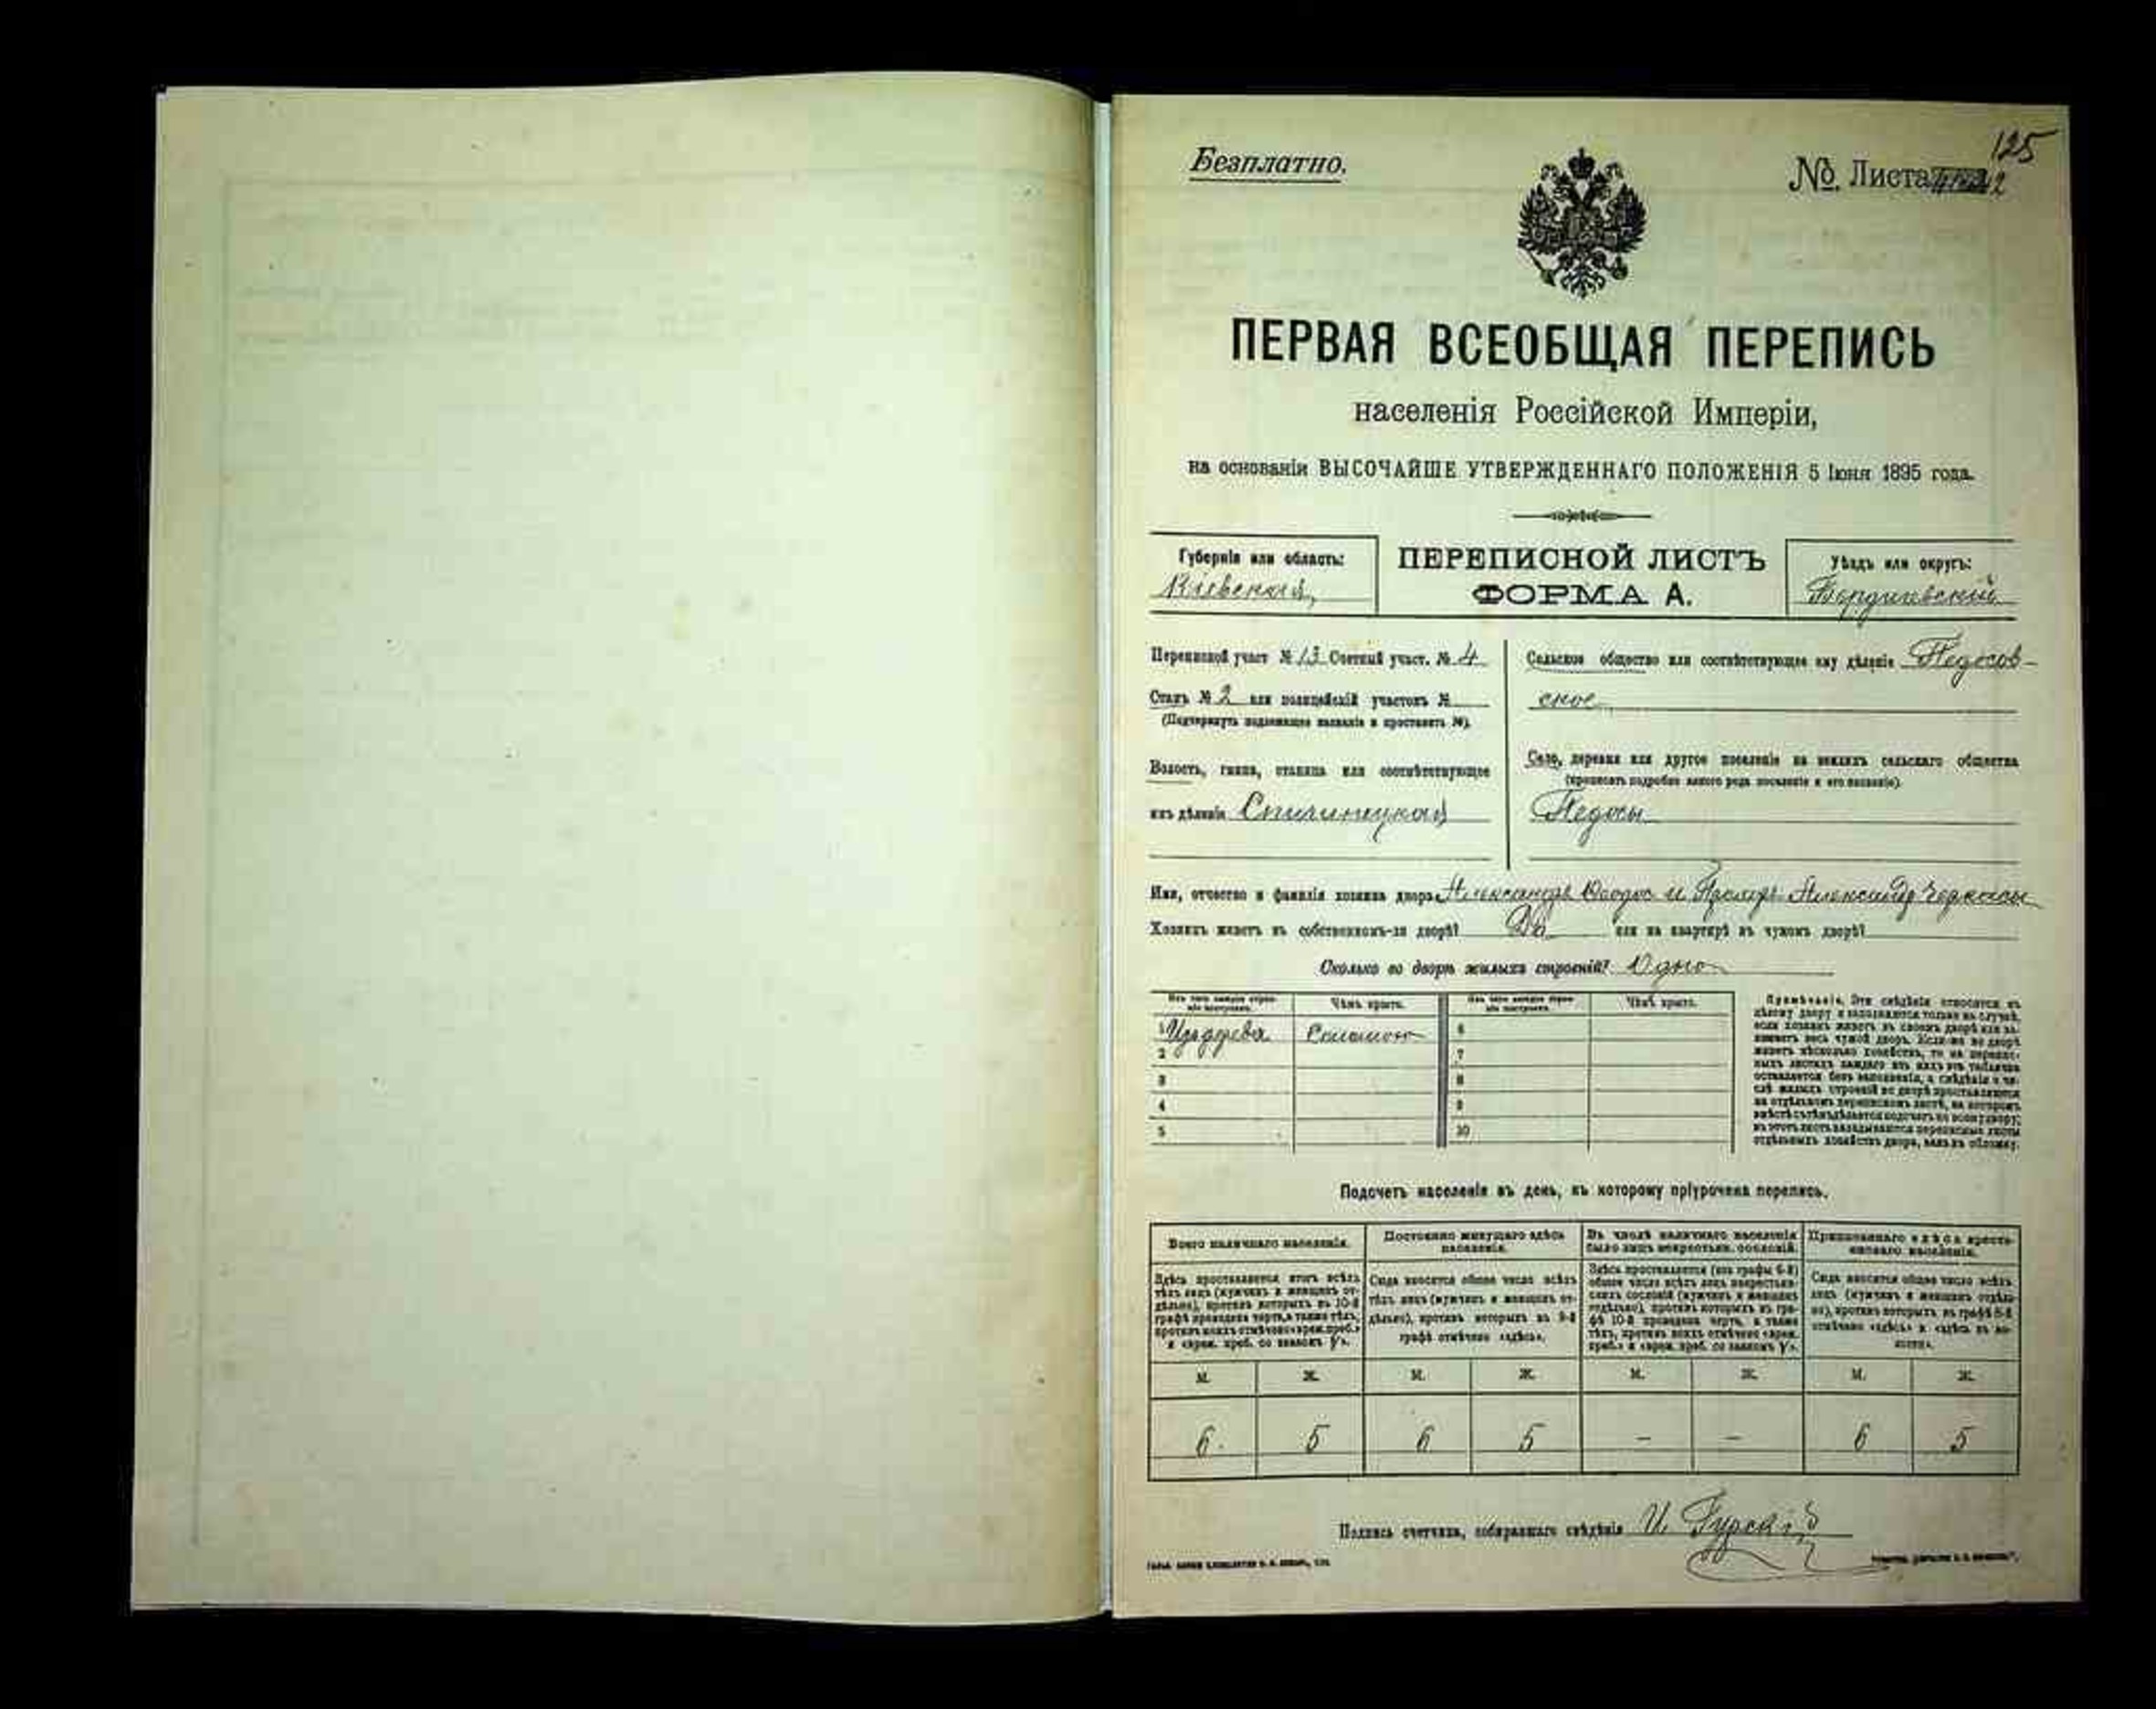 125
Безплатно.
№ Листа 2
ПЕРВАЯ ВСЕОБЩАЯ ПЕРЕПИСЬ
населенія Россійской Имперіи,
на основаніи ВЫСОЧАЙШЕ УТВЕРЖДЕННАГО ПОЛОЖЕНІЯ 5 Іюня 1895 года.
Губернія или область:
Кіевская,
ПЕРЕПИСНОЙ ЛИСТЪ
ФОРМА А.
Уѣздъ или округъ:
Бердичевскій
Переписной участ № 13 Счетный участ. № 4
Станъ № 2 или полицейскій участокъ №
(Подчеркнуть подлежащее названіе и проставить №).
Волость, гмина, станица или соотвѣтствующее
имъ дѣленіе Спичинецкая
Сельское общество или соотвѣтствующее ему дѣленіе Педосов-
ское
Село, деревня или другое поселеніе на земляхъ сельскаго общества
(прописать подробно какого рода поселеніе и его названіе).
Педосы
Имя, отчество и фамилія хозяина двора Александръ Ѳеодос и Александр Черкасы
Хозяинъ живетъ въ собственномъ-ли дворѣ? Да или на квартирѣ въ чужомъ дворѣ?
Сколько во дворѣ жилыхъ строеній? Одно
Чѣмъ крыто.
Чѣмъ крыто.
1 Изъ дерева Соломою 6
2 7
3 8
4 9
5 10
Примѣчаніе. Эти свѣдѣнія относятся къ
цѣлому двору и заполняются только въ случаѣ,
если хозяинъ живетъ въ своемъ дворѣ или за-
нимаетъ весь чужой дворъ. Если-же во дворѣ
живетъ нѣсколько хозяйствъ, то на перепис-
ныхъ листахъ каждаго изъ нихъ эта табличка
оставляется безъ заполненія, а свѣдѣнія о чи-
слѣ жилыхъ строеній во дворѣ проставляются
на отдѣльномъ переписномъ листѣ, на которомъ
вмѣстѣ съ тѣмъ дѣлается подсчетъ по всему двору;
въ этотъ листъ вкладываются переписные листы
отдѣльныхъ хозяйствъ двора, какъ въ обложку.
Подсчетъ населенія въ день, къ которому пріурочена перепись.
Всего наличнаго населенія.
Здѣсь проставляется итогъ всѣхъ
тѣхъ лицъ (мужчинъ и женщинъ от-
дѣльно), противъ которыхъ въ 10-й
графѣ проведена черта, а также тѣхъ,
противъ коихъ отмѣчено «врем. преб.»
и «врем. преб. со знакомъ
Постоянно живущаго здѣсь
населенія.
Сюда вносится общее число всѣхъ
тѣхъ лицъ (мужчинъ и женщинъ от-
дѣльно), противъ которыхъ въ 9-й
графѣ отмѣчено «здѣсь».
Въ числѣ наличнаго населенія
было лицъ некрестьян. сословій.
Здѣсь проставляется (изъ графы 6-й)
общее число всѣхъ лицъ некрестьян-
скихъ сословій (мужчинъ и женщинъ
отдѣльно), противъ которыхъ въ гра-
фѣ 10-й проведена черта, а также
тѣхъ, противъ коихъ отмѣчено «врем.
преб.» и «врем. преб. со знакомъ
Приписаннаго здѣсь кресть-
янскаго населенія.
Сюда вносится общее число всѣхъ
лицъ (мужчинъ и женщинъ отдѣль-
но), противъ которыхъ въ графѣ 8-й
отмѣчено «здѣсь» и «здѣсь въ во-
лости».
М. Ж. М. Ж. М. Ж. М. Ж.
6. 5 6 5 — — 6 5
Подпись счетчика, собиравшаго свѣдѣнія И. Гурскій